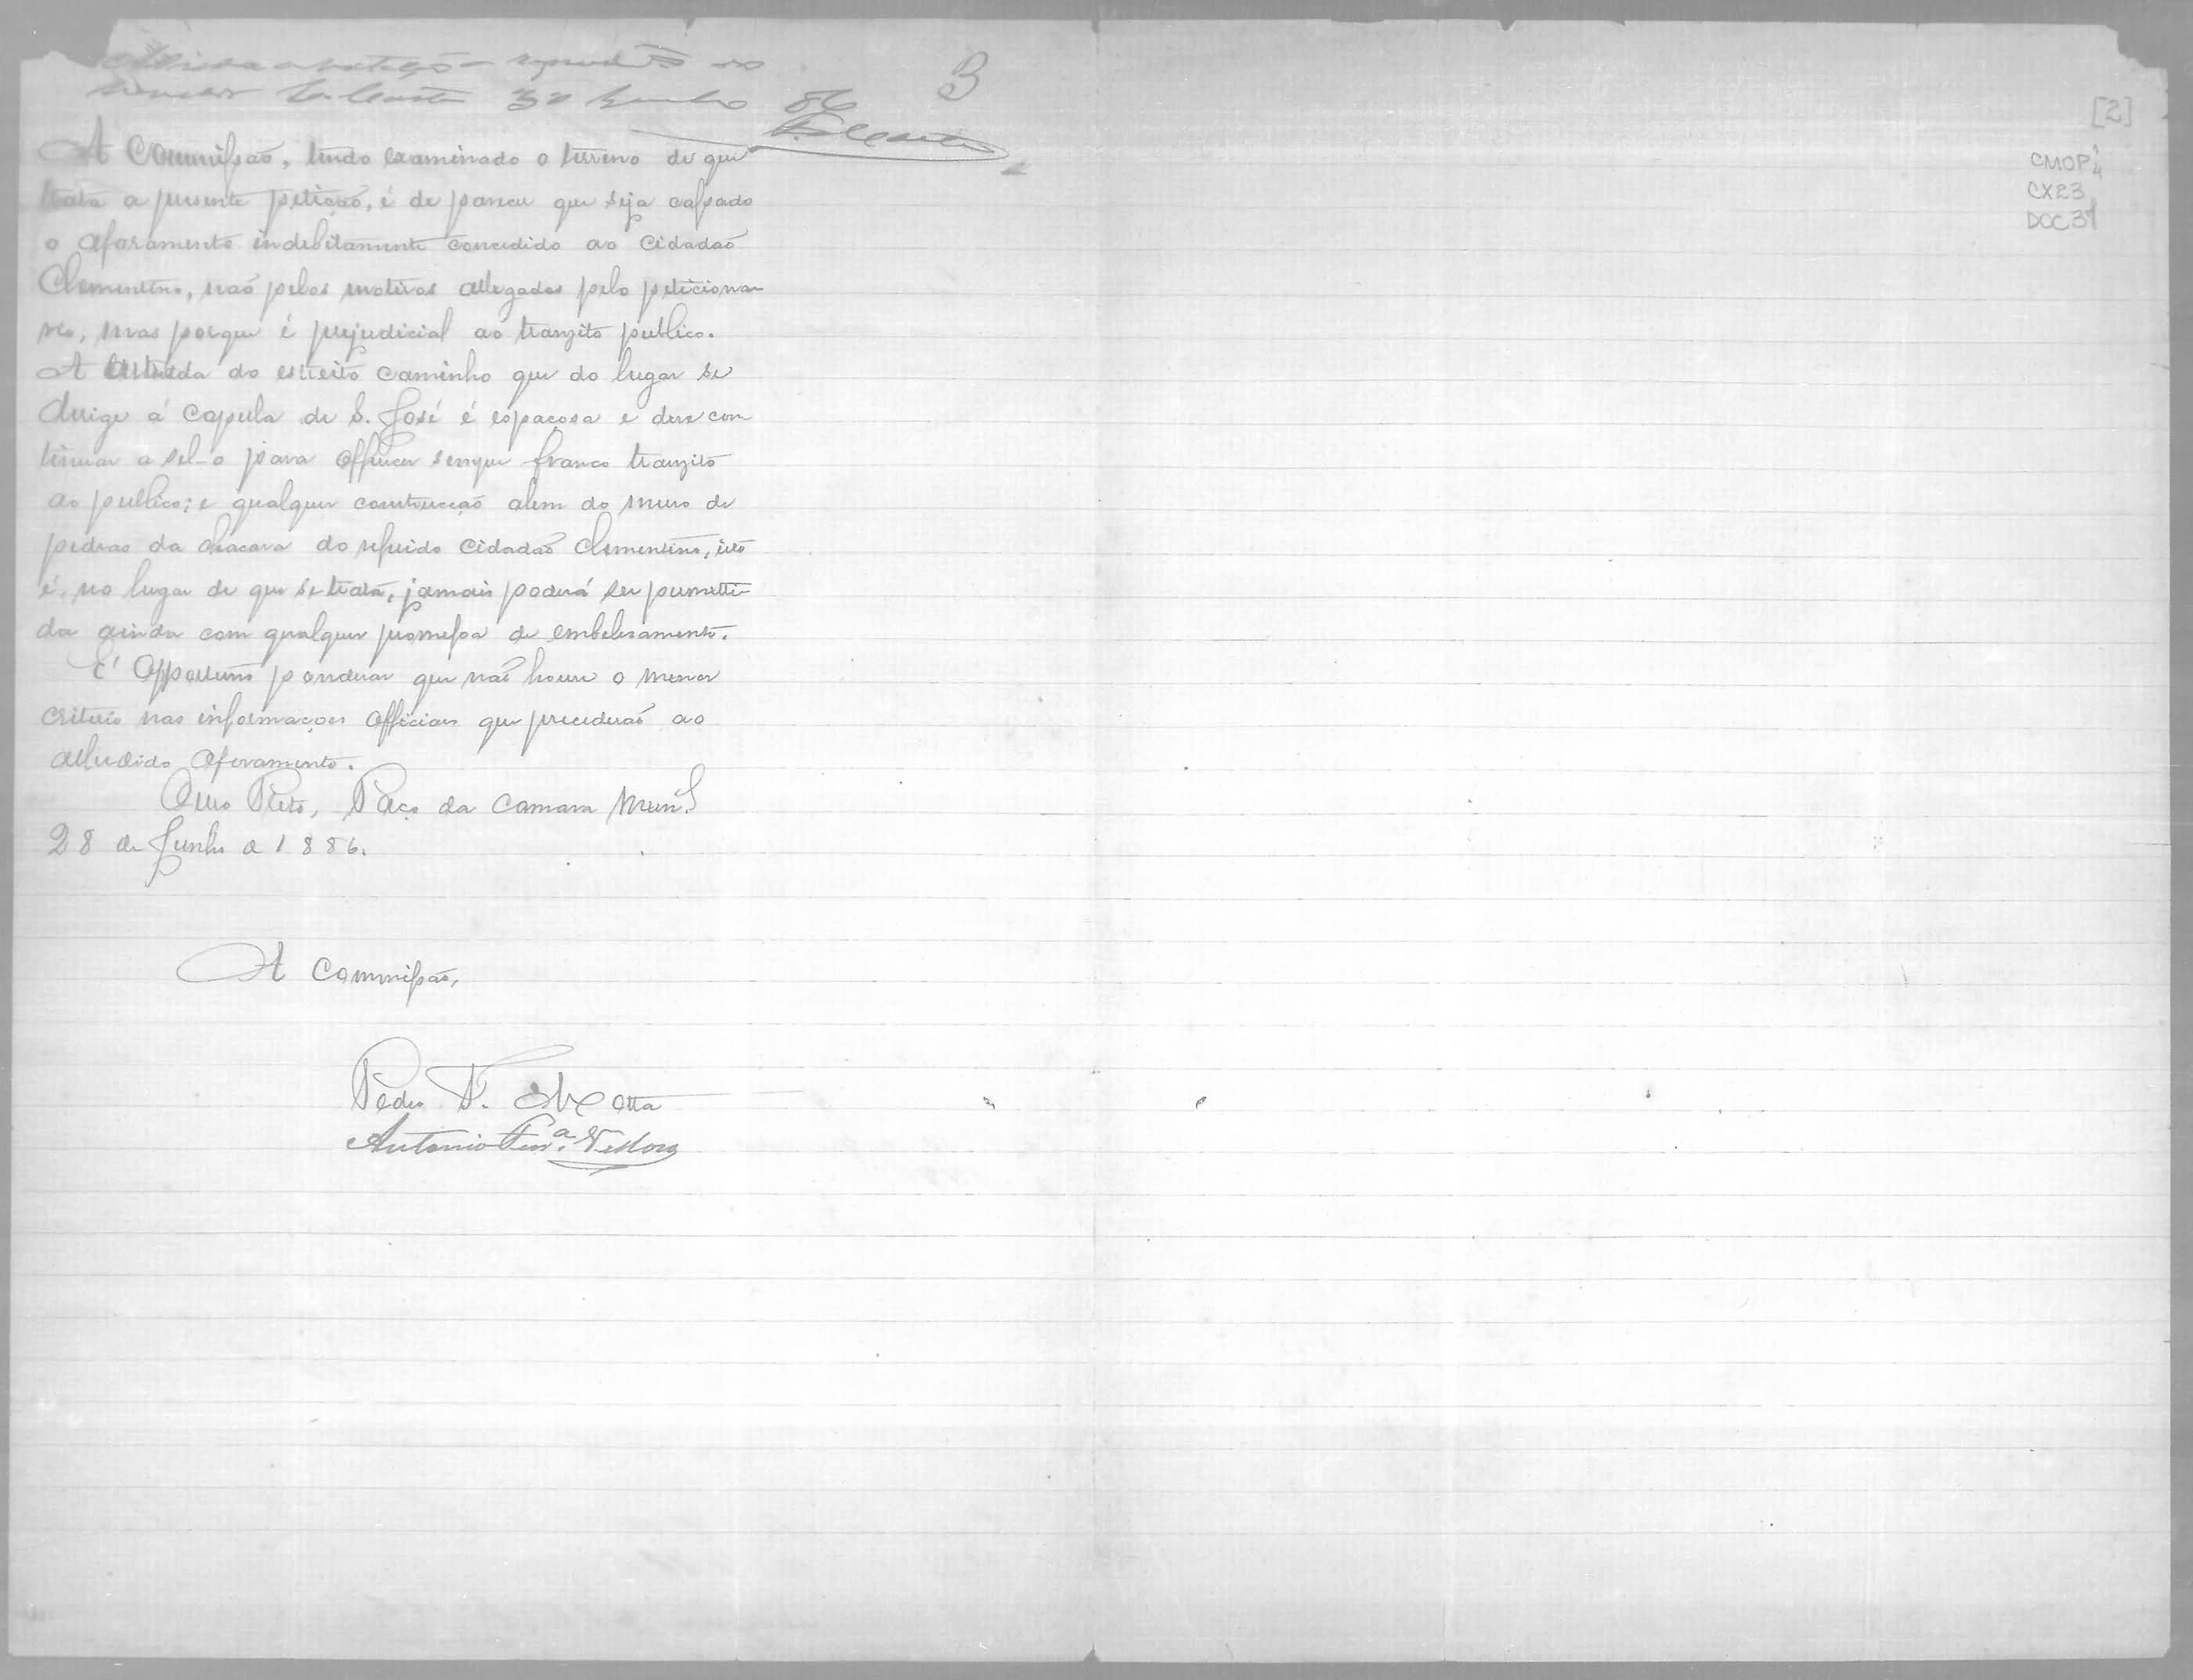 3
30 Junho 86
[2]
CMOP
CX23
DOC 31
A Commissão, tendo examinado o terreno de que
trata a presente petição, é de parecer que seja cassado
o aforamento indebitamente concedido ao cidadão
Clementino, não pelos motivos allegados pelo peticiona-
rio, mas porque é prejudicial ao tranzito publico.
A entrada do estreito caminho que do lugar se
dirige á capella de S. José é espaçosa e deve con
tinuar a sel-o para offerecer sempre franco tranzito
ao publico; e qualquer construcção alem do muro de
pedras da chacara do referido cidadão Clementino, isto
é, no lugar de que se trata, jamais poderá ser permetti-
da ainda com qualquer promessa de embelesamento.
É opportuno ponderar que não houve o menor
criterio nas informações officiaes que precederão ao
alludido aforamento.
Ouro Preto, Paço da Camara Mun.l
28 de Junho de 1886.
A Commissão,
Pedro F. Motta
Antonio Ferr.a